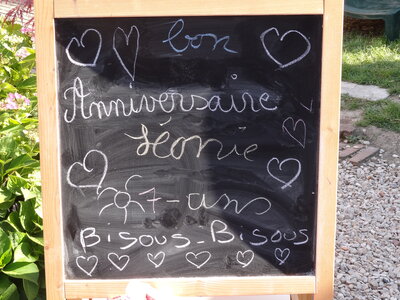 bon
Anniversaire
Léonie
7-ans
Bisous-Bisous